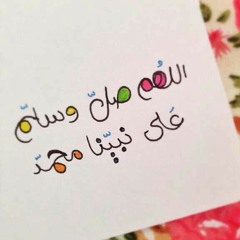 اللهم صلّ وسلّم
على نبيّنا محمّد